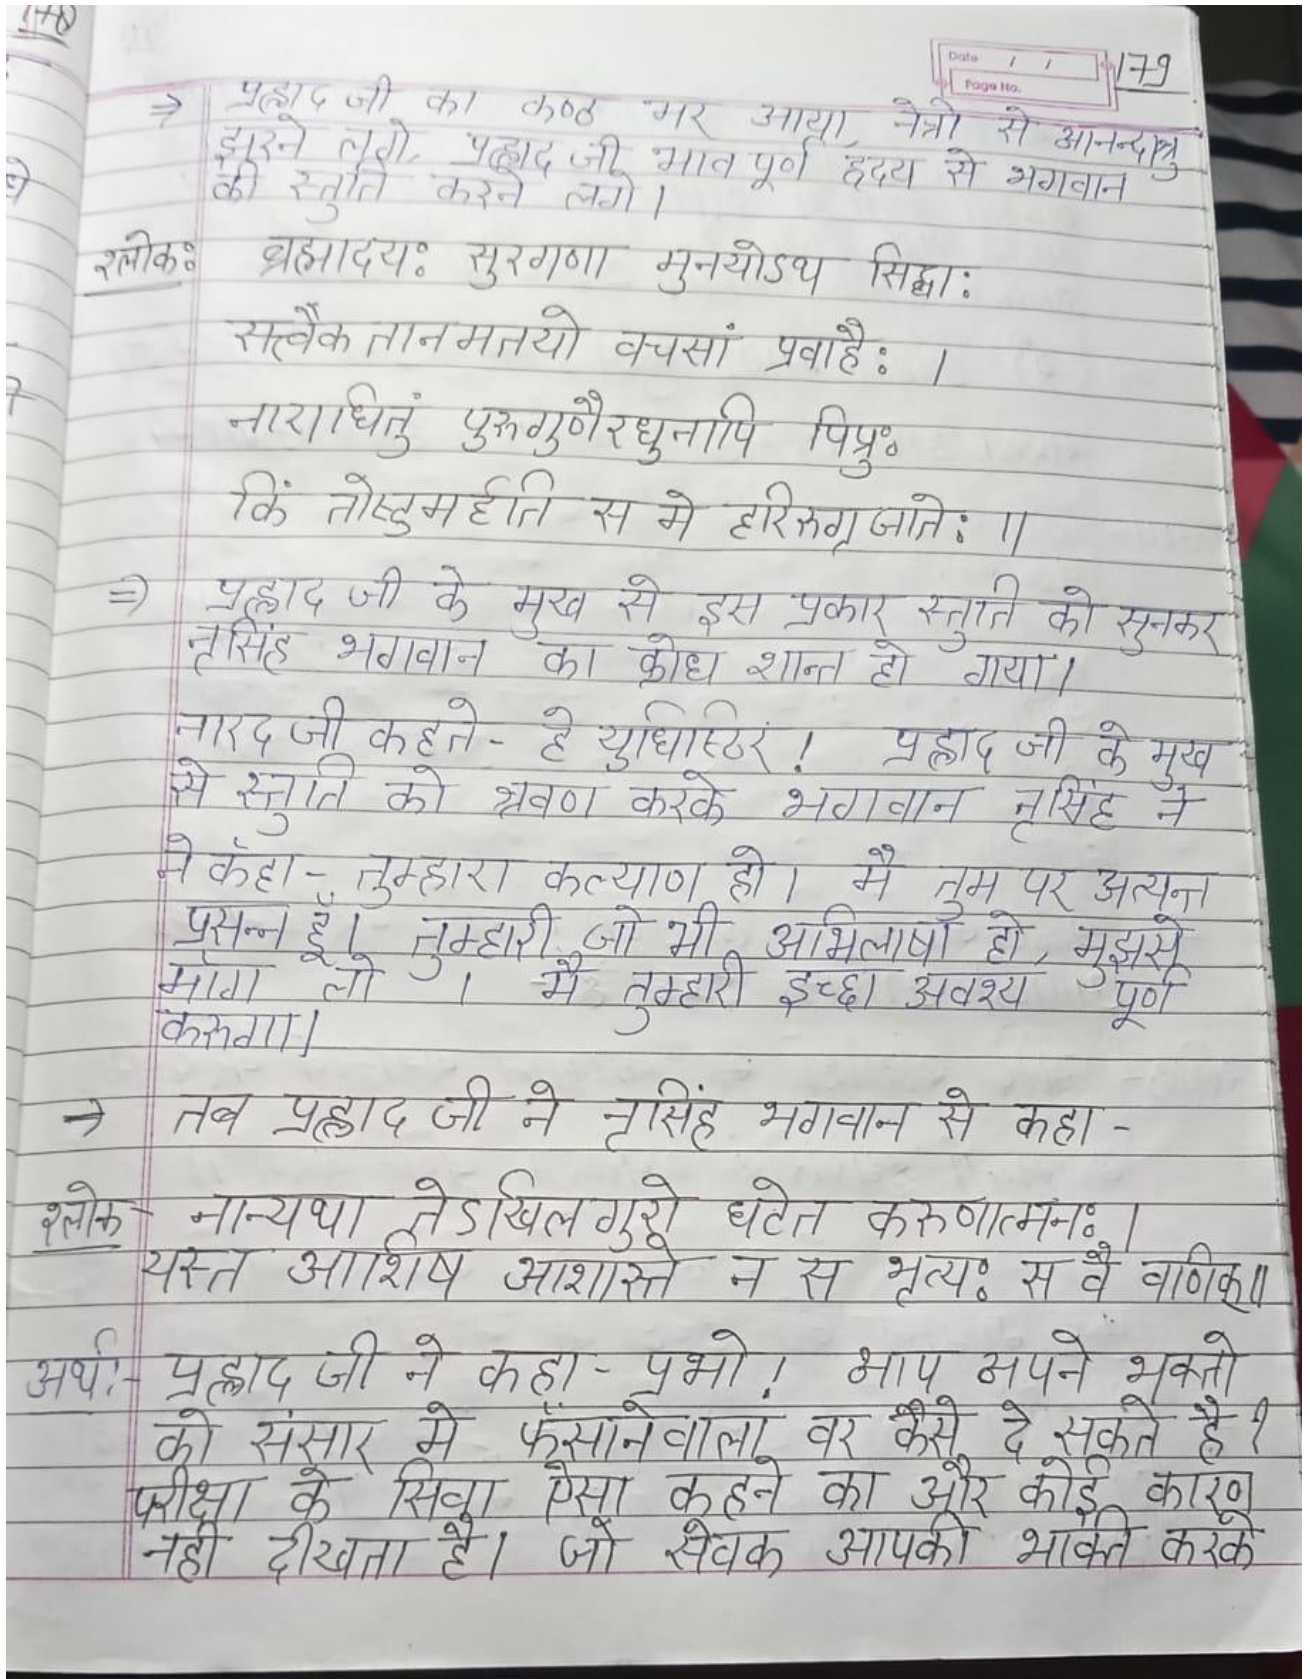 Date / /
179
Page No.
⇒ प्रह्लाद जी का कण्ठ भर आया, नेत्रो से आनन्दाश्रु
झरने लगे, प्रह्लाद जी भाव पूर्ण हृदय से भगवान
की स्तुति करने लगे।
श्लोकः ब्रह्मादयः सुरगणा मुनयोऽथ सिद्धाः
सत्त्वैक तान मतयो वचसां प्रवाहैः ।
नाराधितुं पुरुगुणैरधुनापि पिप्रुः
किं तोष्टुमर्हति स मे हरिरुग्र जातेः ॥
⇒ प्रह्लाद जी के मुख से इस प्रकार स्तुति को सुनकर
नृसिंह भगवान का क्रोध शान्त हो गया।
नारद जी कहते - हे युधिष्टिर! प्रह्लाद जी के मुख
से स्तुति को श्रवण करके भगवान नृसिंह ने
ने कहा - तुम्हारा कल्याण हो। मै तुम पर अत्यन्त
प्रसन्न हूँ। तुम्हारी जो भी अभिलाषा हो, मुझसे
माँग लो । मै तुम्हारी इच्छा अवश्य पूर्ण
करूगा।
→ तब प्रह्लाद जी ने नृसिंह भगवान से कहा -
श्लोक - नान्यथा तेऽखिल गुरो घटेत करुणात्मनः ।
यस्त आशिष आशास्ते न स भृत्यः स वै वणिक्॥
अर्थः- प्रह्लाद जी ने कहा - प्रभो! आप अपने भक्तो
को संसार मे फँसानेवाला वर कैसे दे सकते है?
परीक्षा के सिवा ऐसा कहने का और कोई कारण
नही दीखता है। जो सेवक आपकी भक्ति करके